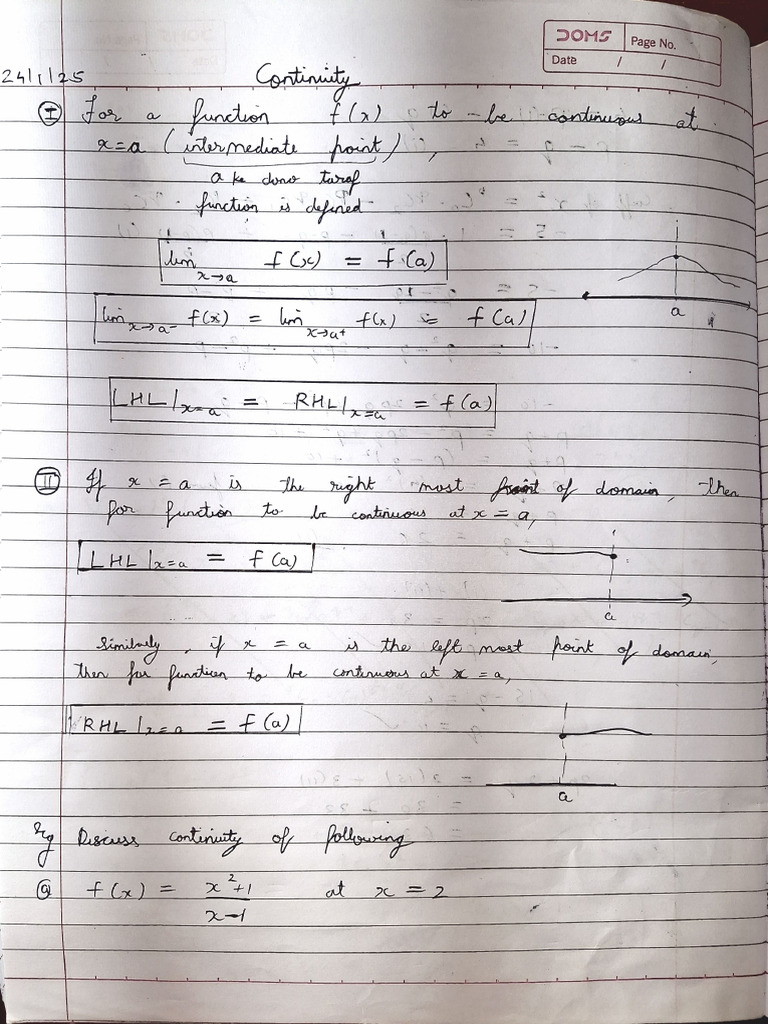 DOMS Page No.
Date / /
24/1/25 Continuity
I For a function f(x) to be continuous at
x=a (intermediate point),
a ke dono taraf
function is defined
lim x→a f(x) = f(a)
a
lim x→a⁻ f(x) = lim x→a⁺ f(x) = f(a)
LHL|x=a = RHL|x=a = f(a)
II If x = a is the right most point of domain, then
for function to be continuous at x = a,
LHL|x=a = f(a)
a
Similarly, if x = a is the left most point of domain,
then for function to be continuous at x = a,
RHL|x=a = f(a)
a
Eg Discuss continuity of following
a f(x) = x²+1 / x-1 at x = 2